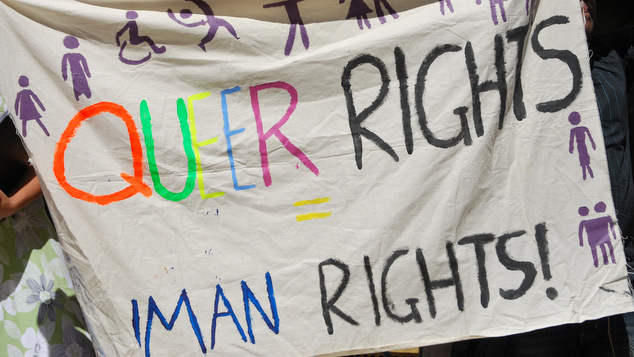 QUEER RIGHTS
=
IMAN RIGHTS!